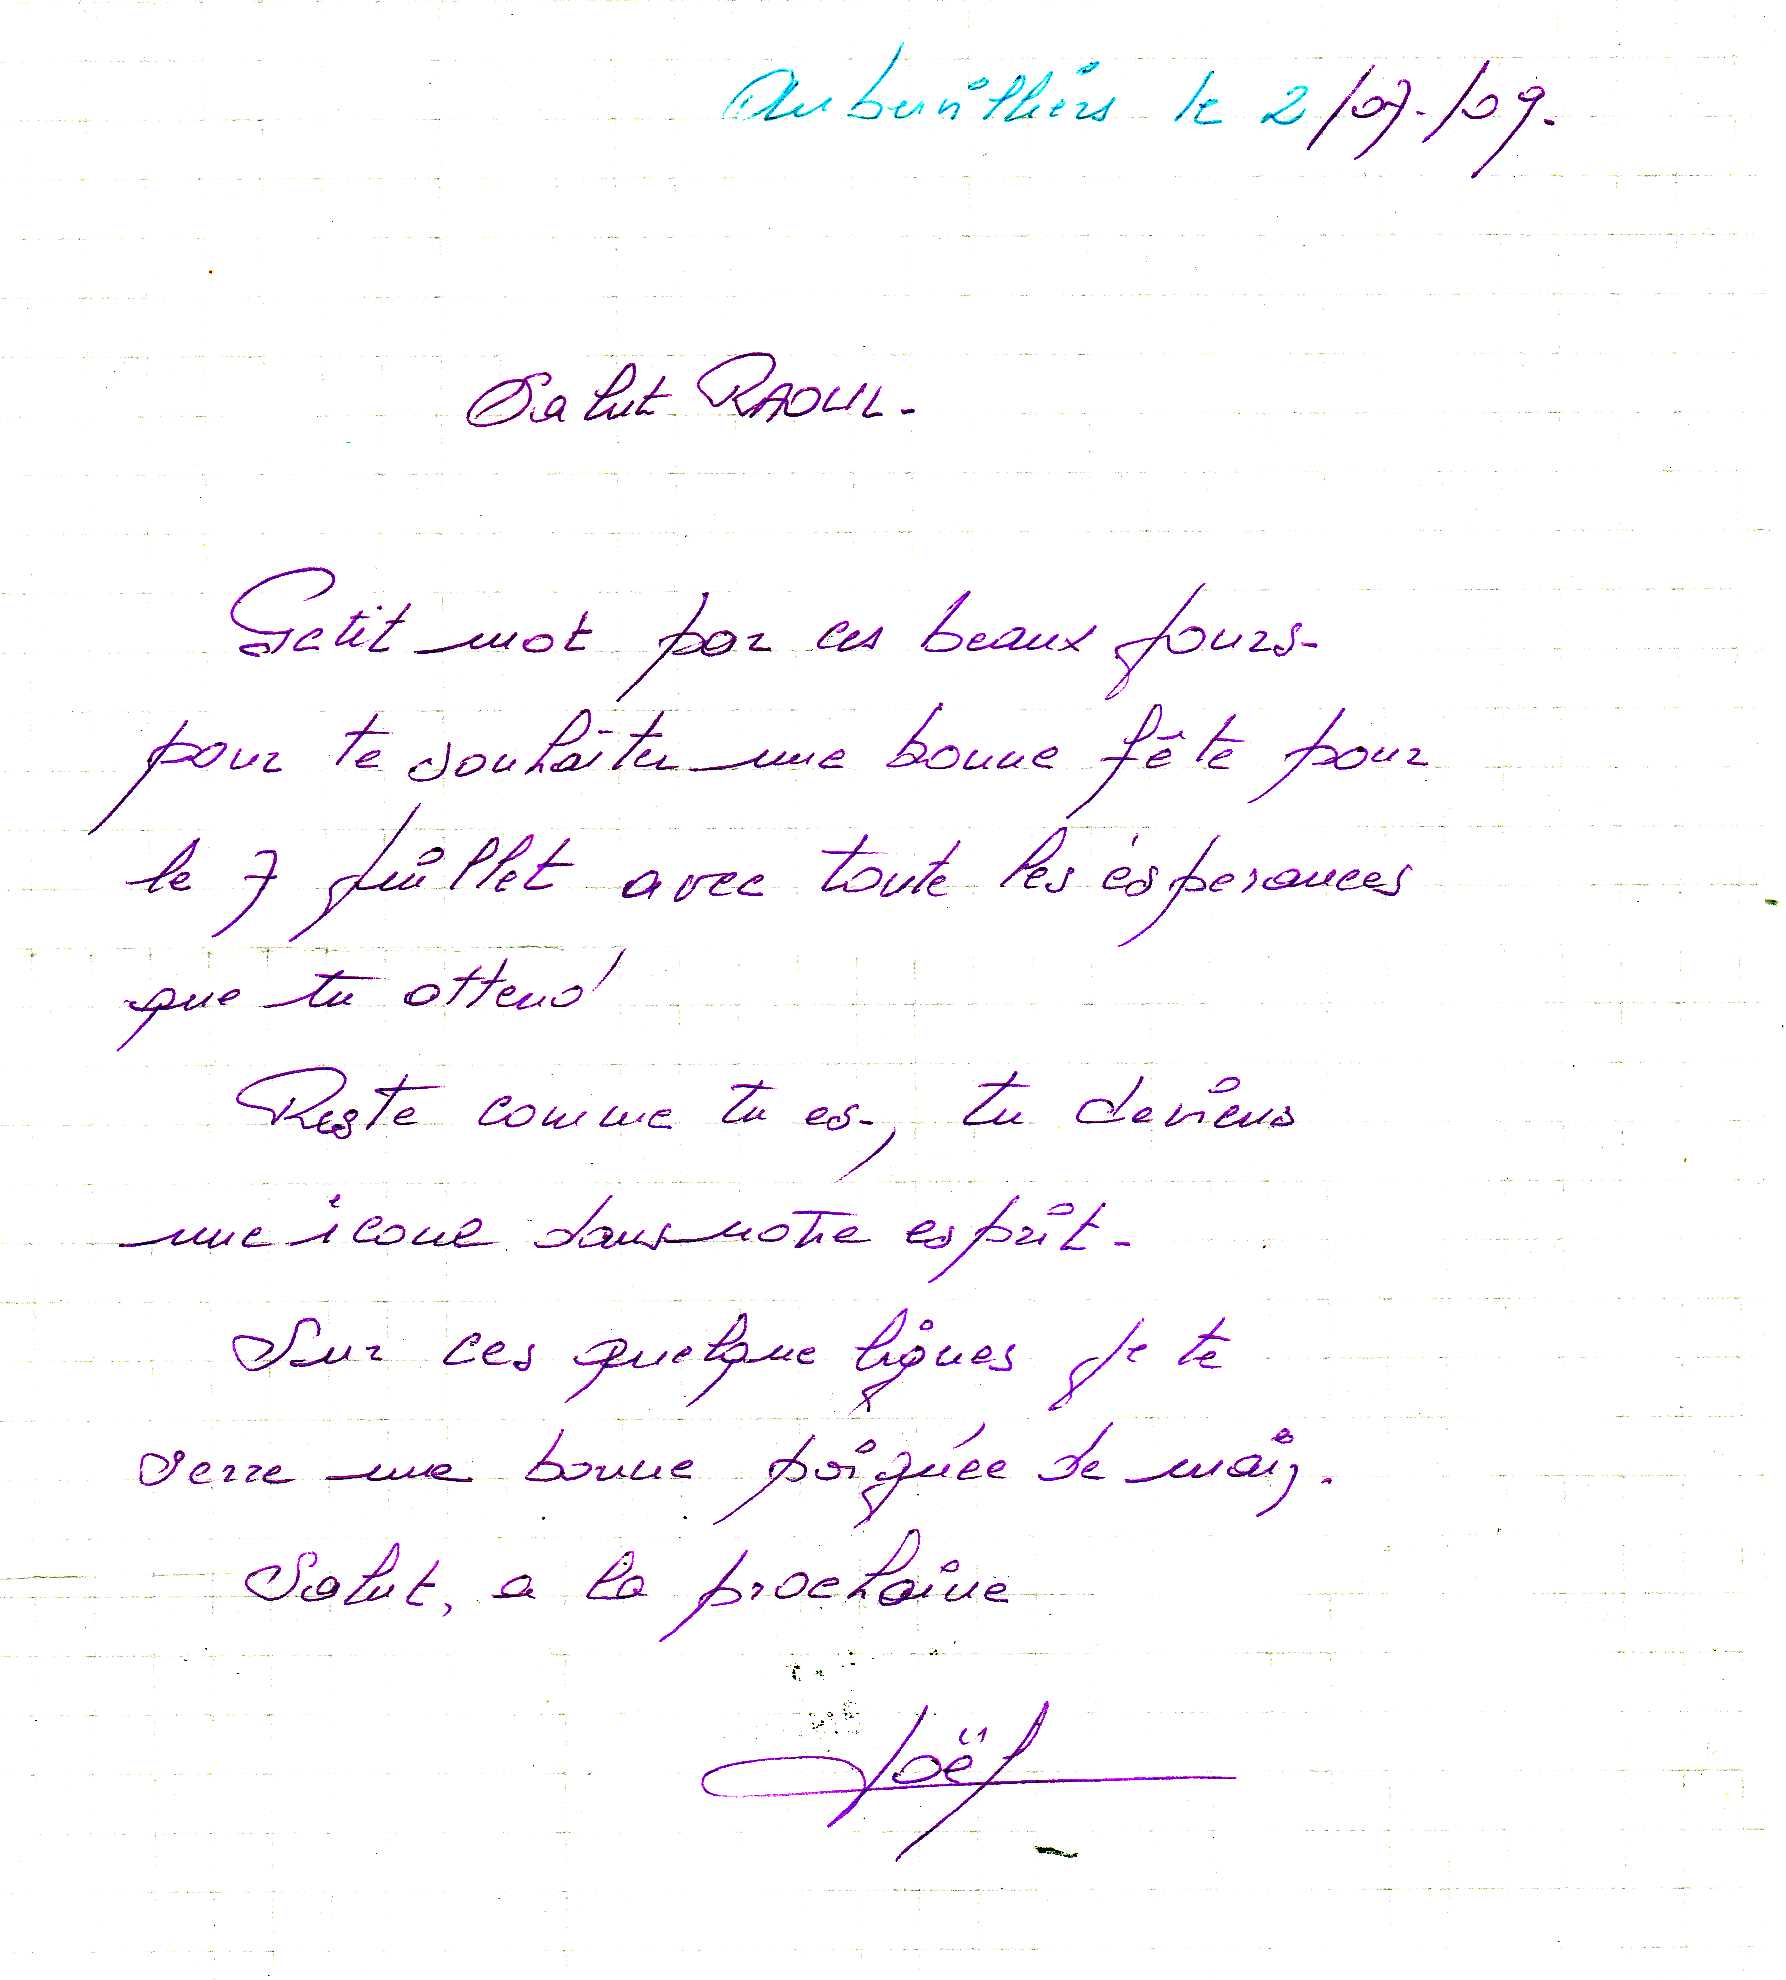 Aubervilliers le 2/07/09.
Salut RAOUL.
Petit mot par ces beaux jours.
pour te souhaiter une bonne fête pour
le 7 juillet avec toute les ésperances
que tu attend
Reste comme tu es, tu deviens
une icone dans notre esprit.
Sur ces quelque lignes je te
serre une bonne poignée de main.
Salut, a la prochaine
Joël